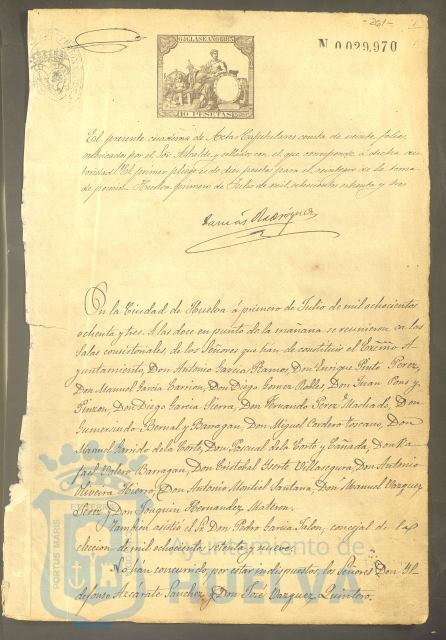 -261-
6ª CLASE AÑO 1883
N 0.029,970
10 PESETAS
El presente cuaderno de Actas Capitulares consta de veinte folios
rubricados por el Sor Alcalde y sellados con el que corresponde á dicha au-
toridad. El primer pliego es de diez pesetas para el reintegro de la toma
de posesion. Huelva primero de Julio de mil ochocientos ochenta y tres
Rodriguez
En la Ciudad de Huelva á primero de Julio de mil ochocientos
ochenta y tres. A las doce en punto de la mañana se reunieron en las
Salas consistoriales, de los Señores que han de constituir el Excmo A-
yuntamiento, Don Antonio Garcia Ramos, Don Enrique Pinto Perez,
Don Manuel Garcia Carrion, Don Diego Gomez Robles, Don Juan Pons y
Pinzon, Don Diego Garcia Sierra, Don Fernando Perez Machado, Don
Gumersindo Bernal y Barragan, Don Miguel Cordero Toscano, Don
Manuel Garrido de la Corte, Don Pascual de la Corte y Cañada, Don Ra
fael Barragan, Don Cristobal Villasegura, Don Antonio
Oliveira Hierro, Don Antonio Montiel Santana, Don Manuel Vazquez
Perez y Don Joaquin Hernandez Matena.
Tambien asistió el Sr. Don Pedro Garcia concejal de la
eleccion de mil ochocientos setenta y nueve.
No han concurrido, por estar indispuestos, los Señores Don Yl-
defonso Azcarate Sanchez y Don José Vazquez Quintero.
PORTUS MARIS
Ayuntamiento de
Huelva